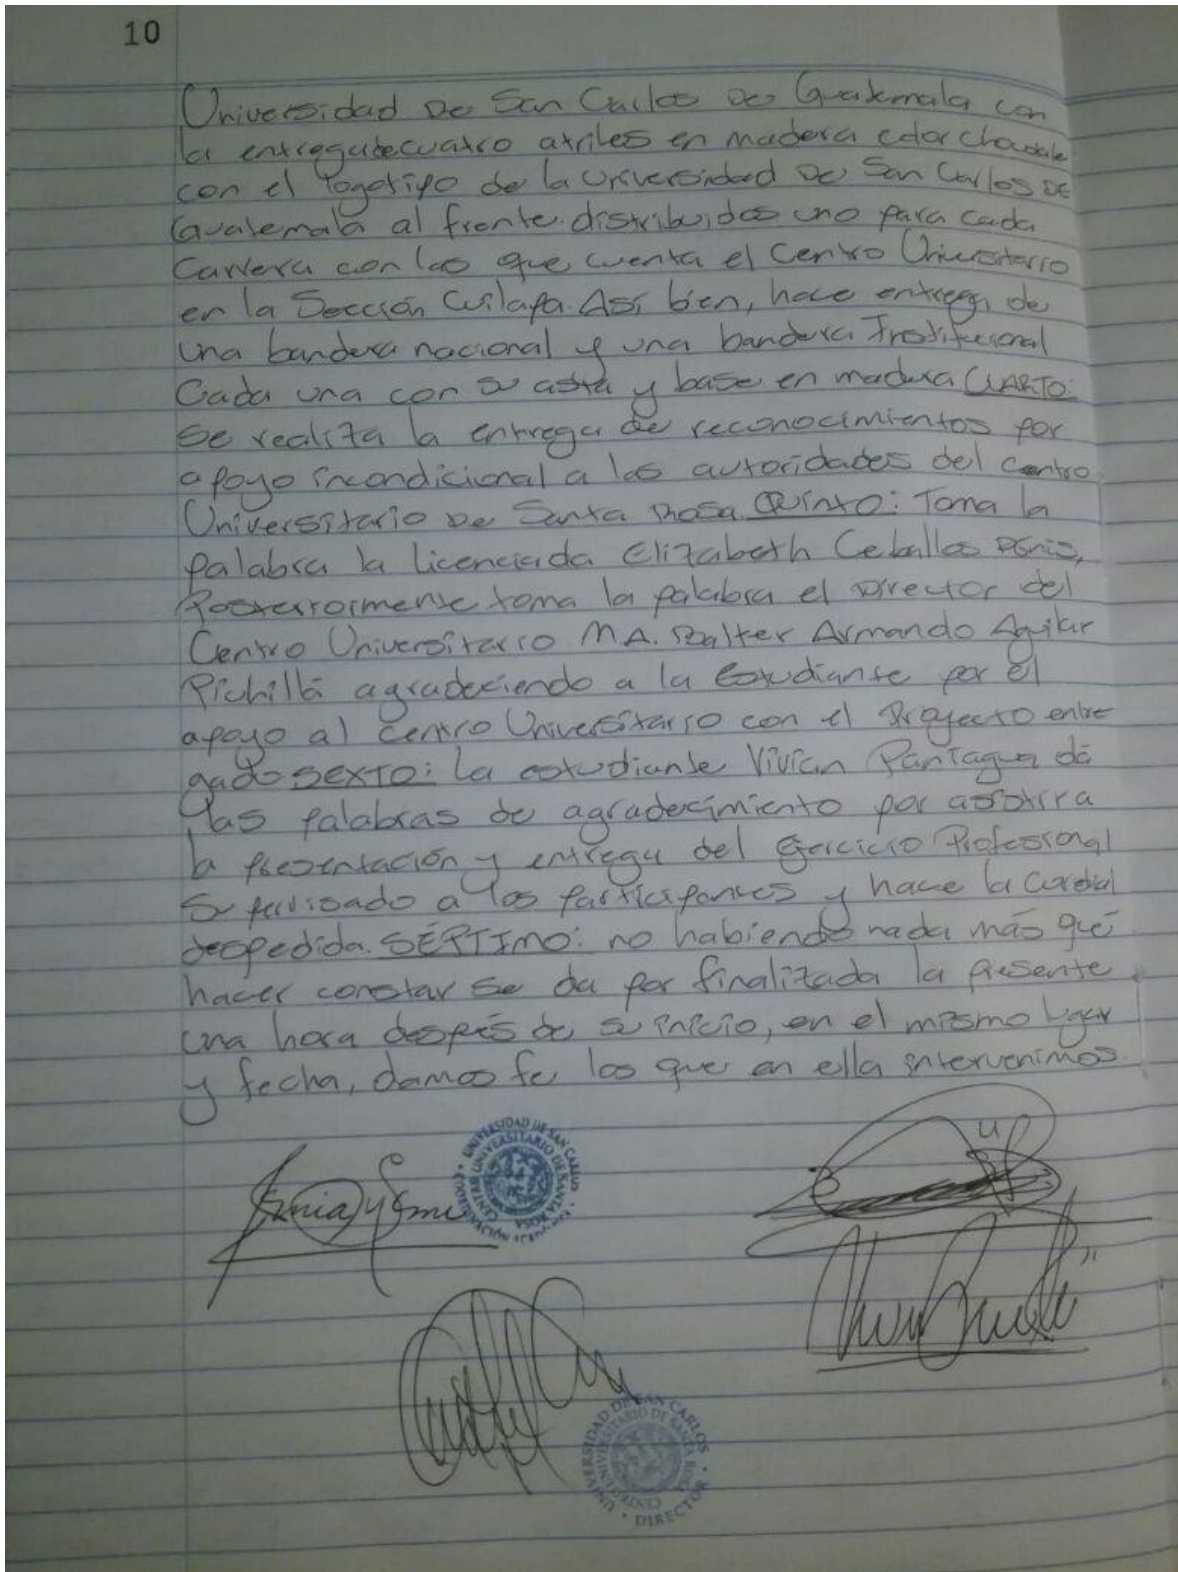 10
Universidad De San Carlos De Guatemala con
la entrega de cuatro atriles en madera color chocolate
con el logotipo de la Universidad De San Carlos DE
Guatemala al frente distribuidos uno para cada
Carrera con las que cuenta el Centro Universitario
en la Sección Cuilapa. Así bien, hace entrega de
una bandera nacional y una bandera Institucional
Cada una con su asta y base en madera CUARTO:
Se realiza la entrega de reconocimientos por
apoyo incondicional a las autoridades del Centro
Universitario De Santa Rosa. QUINTO: Toma la
palabra la licenciada Elizabeth Ceballos
Posteriormente toma la palabra el Director del
Centro Universitario MA. Walter Armando Aguilar
Pichillá agradeciendo a la Estudiante por el
apoyo al Centro Universitario con el Proyecto entre
gado SEXTO: La estudiante Vivian Paniagua dá
las palabras de agradecimiento por asistir a
la presentación y entrega del Ejercicio Profesional
Supervisado a los participantes y hace la Cordial
despedida. SÉPTIMO: no habiendo nada más que
hacer constar se da por finalizada la presente
una hora después de su inicio, en el mismo lugar
y fecha, damos fe los que en ella intervenimos.
UNIVERSIDAD DE SAN CARLOS
CENTRO UNIVERSITARIO DE SANTA ROSA
UNIVERSIDAD DE SAN CARLOS
CENTRO UNIVERSITARIO DE SANTA ROSA
DIRECTOR